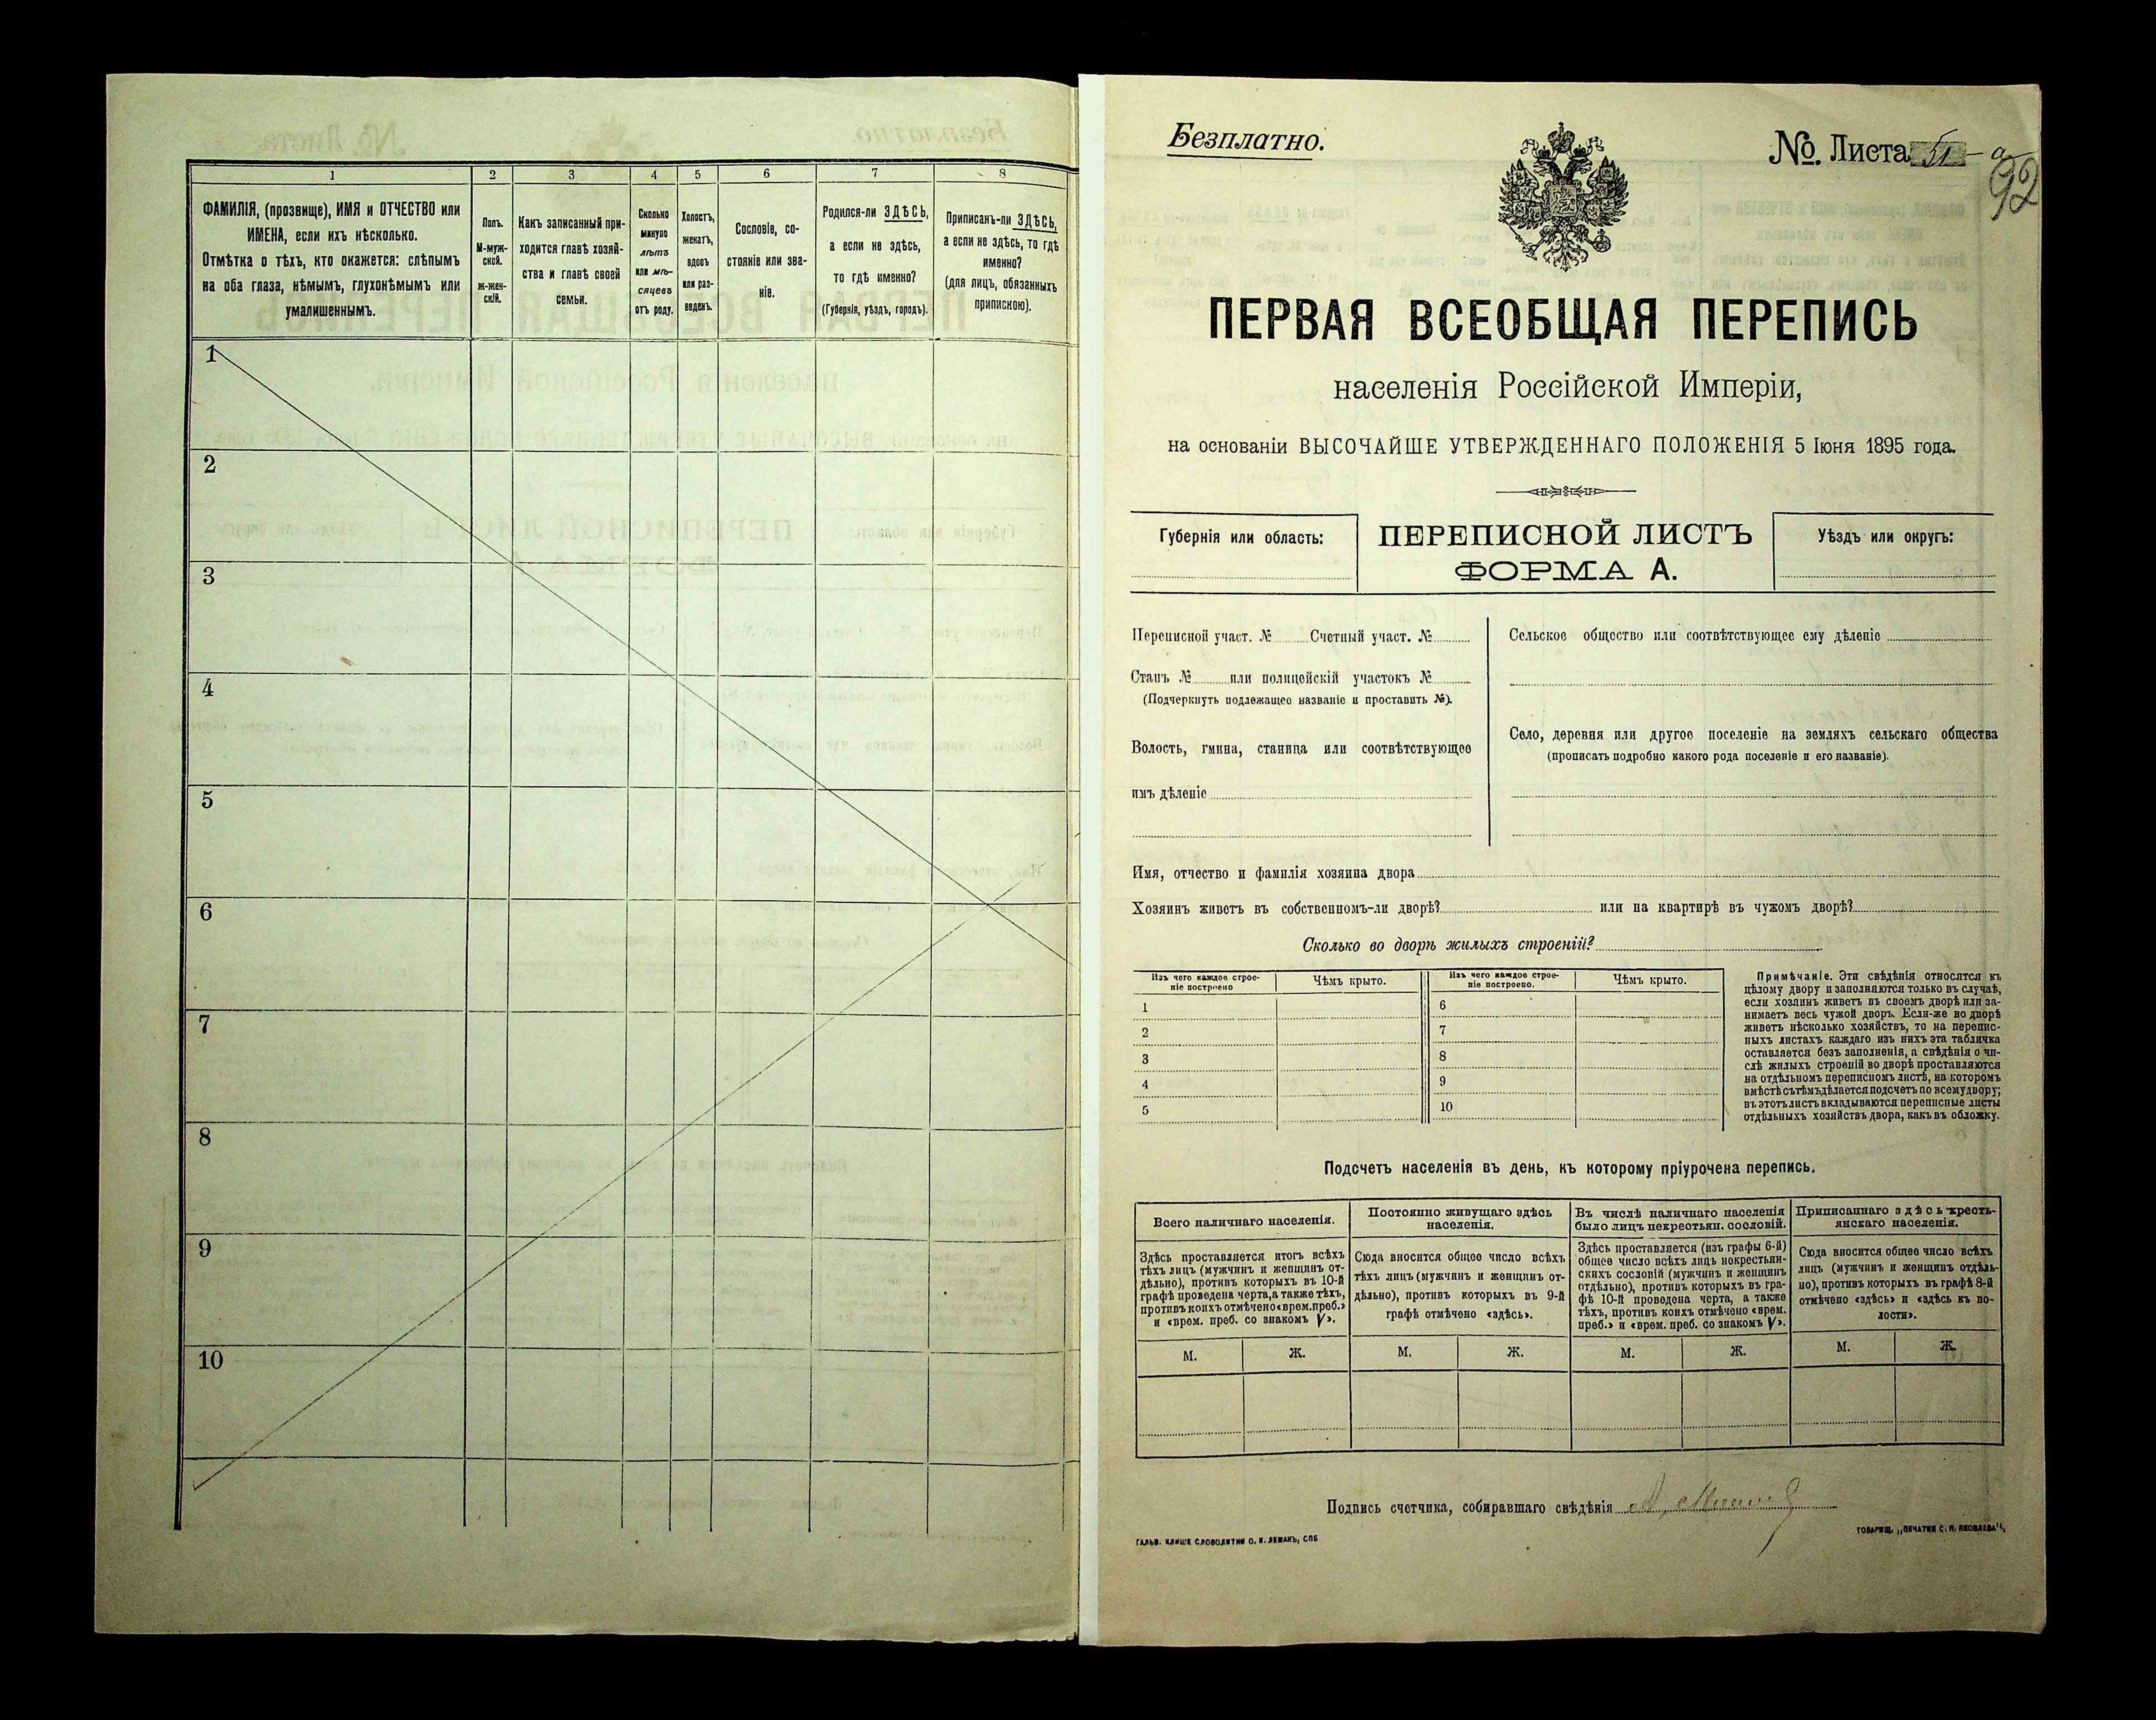 1 2 3 4 5 6 7 8
ФАМИЛІЯ, (прозвище), ИМЯ и ОТЧЕСТВО или
ИМЕНА, если ихъ нѣсколько.
Отмѣтка о тѣхъ, кто окажется: слѣпымъ
на оба глаза, нѣмымъ, глухонѣмымъ или
умалишеннымъ.
Полъ.
М-муж-
ской.
ж-жен-
скій.
Какъ записанный при-
ходится главѣ хозяй-
ства и главѣ своей
семьи.
Сколько
минуло
лѣтъ
или мѣ-
сяцевъ
отъ роду.
Холостъ,
женатъ,
вдовъ
или раз-
веденъ.
Сословіе, со-
стояніе или зва-
ніе.
Родился-ли ЗДѢСЬ,
а если не здѣсь,
то гдѣ именно?
(Губернія, уѣздъ, городъ).
Приписанъ-ли ЗДѢСЬ,
а если не здѣсь, то гдѣ
именно?
(для лицъ, обязанныхъ
припискою).
1
2
3
4
5
6
7
8
9
10
Безплатно.
№. Листа 51 - а
92
ПЕРВАЯ ВСЕОБЩАЯ ПЕРЕПИСЬ
населенія Россійской Имперіи,
на основаніи ВЫСОЧАЙШЕ УТВЕРЖДЕННАГО ПОЛОЖЕНІЯ 5 Іюня 1895 года.
Губернія или область:
ПЕРЕПИСНОЙ ЛИСТЪ
ФОРМА А.
Уѣздъ или округъ:
Переписной участ. № Счетный участ. №
Станъ № или полицейскій участокъ №
(Подчеркнуть подлежащее названіе и проставить №).
Волость, гмина, станица или соотвѣтствующее
имъ дѣленіе
Сельское общество или соотвѣтствующее ему дѣленіе
Село, деревня или другое поселеніе на земляхъ сельскаго общества
(прописать подробно какого рода поселеніе и его названіе).
Имя, отчество и фамилія хозяина двора
Хозяинъ живетъ въ собственномъ-ли дворѣ? или на квартирѣ въ чужомъ дворѣ?
Сколько во дворѣ жилыхъ строеній?
Изъ чего каждое строе-
ніе построено
Чѣмъ крыто.
Изъ чего каждое строе-
ніе построено.
Чѣмъ крыто.
1 6
2 7
3 8
4 9
5 10
Примѣчаніе. Эти свѣдѣнія относятся къ
цѣлому двору и заполняются только въ случаѣ,
если хозяинъ живетъ въ своемъ дворѣ или за-
нимаетъ весь чужой дворъ. Если-же во дворѣ
живетъ нѣсколько хозяйствъ, то на перепис-
ныхъ листахъ каждаго изъ нихъ эта табличка
оставляется безъ заполненія, а свѣдѣнія о чи-
слѣ жилыхъ строеній во дворѣ проставляются
на отдѣльномъ переписномъ листѣ, на которомъ
вмѣстѣ съ тѣмъ дѣлается подсчетъ по всему двору;
въ этотъ листъ вкладываются переписные листы
отдѣльныхъ хозяйствъ двора, какъ въ обложку.
Подсчетъ населенія въ день, къ которому пріурочена перепись.
Всего наличнаго населенія.
Постоянно живущаго здѣсь
населенія.
Въ числѣ наличнаго населенія
было лицъ некрестьян. сословій.
Приписаннаго здѣсь кресть-
янскаго населенія.
Здѣсь проставляется итогъ всѣхъ
тѣхъ лицъ (мужчинъ и женщинъ от-
дѣльно), противъ которыхъ въ 10-й
графѣ проведена черта, а также тѣхъ,
противъ коихъ отмѣчено «врем. преб.»
и «врем. преб. со знакомъ V».
Сюда вносится общее число всѣхъ
тѣхъ лицъ (мужчинъ и женщинъ от-
дѣльно), противъ которыхъ въ 9-й
графѣ отмѣчено «здѣсь».
Здѣсь проставляется (изъ графы 6-й)
общее число всѣхъ лицъ некрестьян-
скихъ сословій (мужчинъ и женщинъ
отдѣльно), противъ которыхъ въ гра-
фѣ 10-й проведена черта, а также
тѣхъ, противъ коихъ отмѣчено «врем.
преб.» и «врем. преб. со знакомъ V».
Сюда вносится общее число всѣхъ
лицъ (мужчинъ и женщинъ отдѣль-
но), противъ которыхъ въ графѣ 8-й
отмѣчено «здѣсь» и «здѣсь къ во-
лости».
М. Ж. М. Ж. М. Ж. М. Ж.
Подпись счетчика, собиравшаго свѣдѣнія
ГАЛЬВ. КЛИШЕ СЛОВОЛИТНИ О. И. ЛЕМАНЪ, СПБ
ТОВАРИЩ. „ПЕЧАТНЯ С. П. ЯКОВЛЕВА".